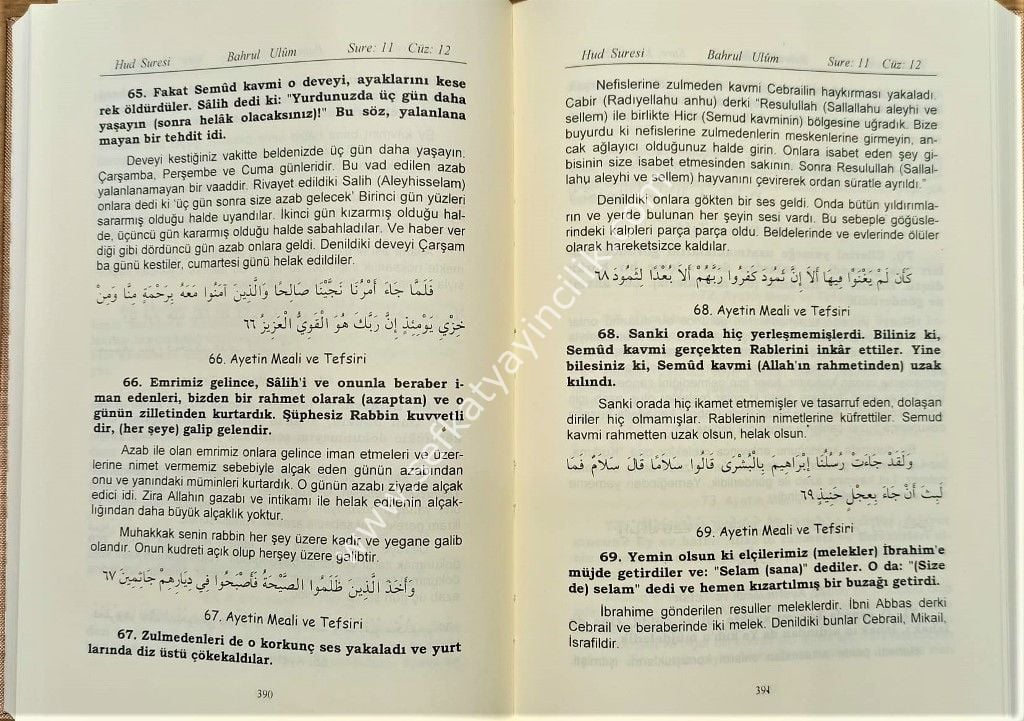 Hud Suresi Bahrul Ulûm Sure: 11 Cüz: 12
65. Fakat Semûd kavmi o deveyi, ayaklarını kese
rek öldürdüler. Sâlih dedi ki: "Yurdunuzda üç gün daha
yaşayın (sonra helâk olacaksınız)!" Bu söz, yalanlana
mayan bir tehdit idi.
Deveyi kestiğiniz vakitte beldenizde üç gün daha yaşayın.
Çarşamba, Perşembe ve Cuma günleridir. Bu vad edilen azab
yalanlanamayan bir vaaddir. Rivayet edildiki Salih (Aleyhisselam)
onlara dedi ki 'üç gün sonra size azab gelecek' Birinci gün yüzleri
sararmış olduğu halde uyandılar. İkinci gün kızarmış olduğu hal-
de, üçüncü gün kararmış olduğu halde sabahladılar. Ve haber ver
diği gibi dördüncü gün azab onlara geldi. Denildiki deveyi Çarşam
ba günü kestiler, cumartesi günü helak edildiler.
فَلَمَّا جَاءَ أَمْرُنَا نَجَّيْنَا صَالِحًا وَالَّذِينَ آمَنُوا مَعَهُ بِرَحْمَةٍ مِنَّا وَمِنْ
خِزْيِ يَوْمِئِذٍ إِنَّ رَبَّكَ هُوَ الْقَوِيُّ الْعَزِيزُ ٦٦
66. Ayetin Meali ve Tefsiri
66. Emrimiz gelince, Sâlih'i ve onunla beraber i-
man edenleri, bizden bir rahmet olarak (azaptan) ve o
günün zilletinden kurtardık. Şüphesiz Rabbin kuvvetli
dir, (her şeye) galip gelendir.
Azab ile olan emrimiz onlara gelince iman etmeleri ve üzer-
lerine nimet vermemiz sebebiyle alçak eden günün azabından
onu ve yanındaki müminleri kurtardık. O günün azabı ziyade alçak
edici idi. Zira Allahın gazabı ve intikamı ile helak edilenin alçak-
lığından daha büyük alçaklık yoktur.
Muhakkak senin rabbin her şey üzere kadir ve yegane galib
olandır. Onun kudreti açık olup herşey üzere galibtir.
وَأَخَذَ الَّذِينَ ظَلَمُوا الصَّيْحَةُ فَأَصْبَحُوا فِي دِيَارِهِمْ جَاثِمِينَ ٦٧
67. Ayetin Meali ve Tefsiri
67. Zulmedenleri de o korkunç ses yakaladı ve yurt
larında diz üstü çökekaldılar.
390
Hud Suresi Bahrul Ulûm Sure: 11 Cüz: 12
Nefislerine zulmeden kavmi Cebrailin haykırması yakaladı.
Cabir (Radıyellahu anhu) derki "Resulullah (Sallallahu aleyhi ve
sellem) ile birlikte Hicr (Semud kavminin) bölgesine uğradık. Bize
buyurdu ki nefislerine zulmedenlerin meskenlerine girmeyin, an-
cak ağlayıcı olduğunuz halde girin. Onlara isabet eden şey gi-
bisinin size isabet etmesinden sakının. Sonra Resulullah (Sallal-
lahu aleyhi ve sellem) hayvanını çevirerek ordan süratle ayrıldı."
Denildiki onlara gökten bir ses geldi. Onda bütün yıldırımla-
rın ve yerde bulunan her şeyin sesi vardı. Bu sebeple göğüsle-
rindeki kalpleri parça parça oldu. Beldelerinde ve evlerinde ölüler
olarak hareketsizce kaldılar.
كَأَنْ لَمْ يَغْنَوْا فِيهَا أَلَا إِنَّ ثَمُودَ كَفَرُوا رَبَّهُمْ أَلَا بُعْدًا لِثَمُودَ ٦٨
68. Ayetin Meali ve Tefsiri
68. Sanki orada hiç yerleşmemişlerdi. Biliniz ki,
Semûd kavmi gerçekten Rablerini inkâr ettiler. Yine
bilesiniz ki, Semûd kavmi (Allah'ın rahmetinden) uzak
kılındı.
Sanki orada hiç ikamet etmemişler ve tasarruf eden, dolaşan
diriler hiç olmamışlar. Rablerinin nimetlerine küfrettiler. Semud
kavmi rahmetten uzak olsun, helak olsun.
وَلَقَدْ جَاءَتْ رُسُلُنَا إِبْرَاهِيمَ بِالْبُشْرَى قَالُوا سَلَامًا قَالَ سَلَامٌ فَمَا
لَبِثَ أَنْ جَاءَ بِعِجْلٍ حَنِيذٍ ٦٩
69. Ayetin Meali ve Tefsiri
69. Yemin olsun ki elçilerimiz (melekler) İbrahim'e
müjde getirdiler ve: "Selam (sana)" dediler. O da: "(Size
de) selam" dedi ve hemen kızartılmış bir buzağı getirdi.
İbrahime gönderilen resuller meleklerdir. İbni Abbas derki
Cebrail ve beraberinde iki melek. Denildiki bunlar Cebrail, Mikail,
İsrafildir.
391
www.sefkatyayincilik.com